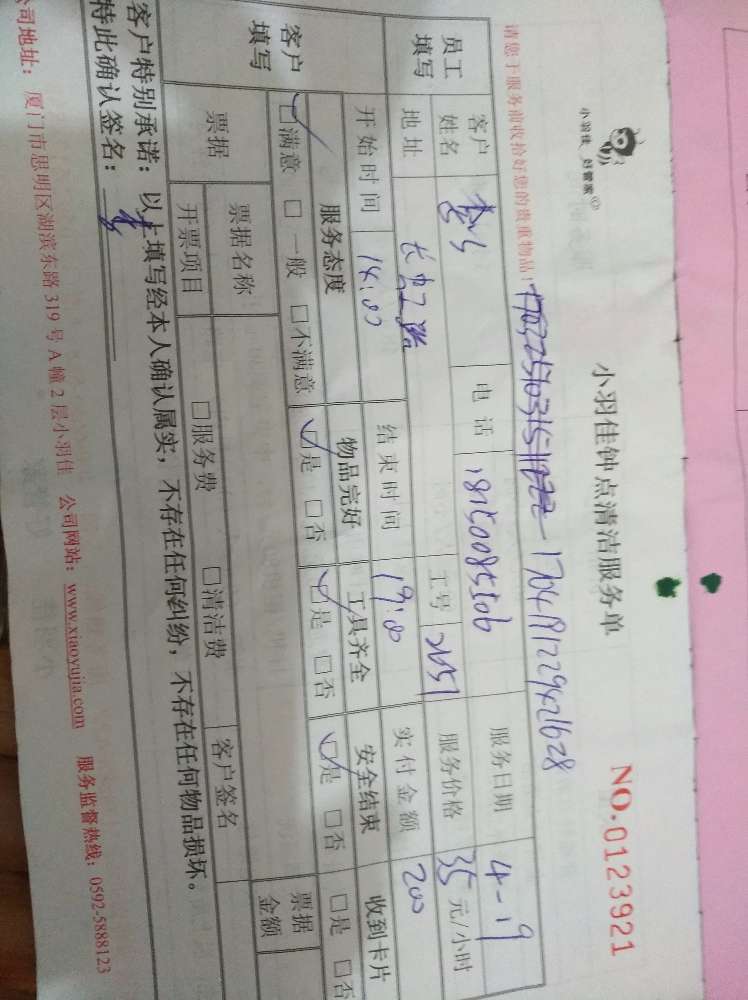 小羽佳 好管家
小羽佳钟点清洁服务单
NO.0123921
请您于服务前收拾好您的贵重物品!
1704191229421628
员工填写
客户姓名
电话 18150085506
服务日期 4-19
地址
工号 2651
服务价格 35 元/小时
开始时间 14:00
结束时间 19:00
实付金额 200
客户填写
服务态度
物品完好
工具齐全
安全结束
收到卡片
☑满意 □一般 □不满意
☑是 □否
☑是 □否
☑是 □否
□是 □否
票据
票据名称
客户签名
票据金额
开票项目
□服务费 □清洁费
客户特别承诺：以上填写经本人确认属实，不存在任何纠纷，不存在任何物品损坏。
特此确认签名：
公司地址：厦门市思明区湖滨东路319号A幢2层小羽佳 公司网站：www.xiaoyujia.com 服务监督热线：0592-5888123